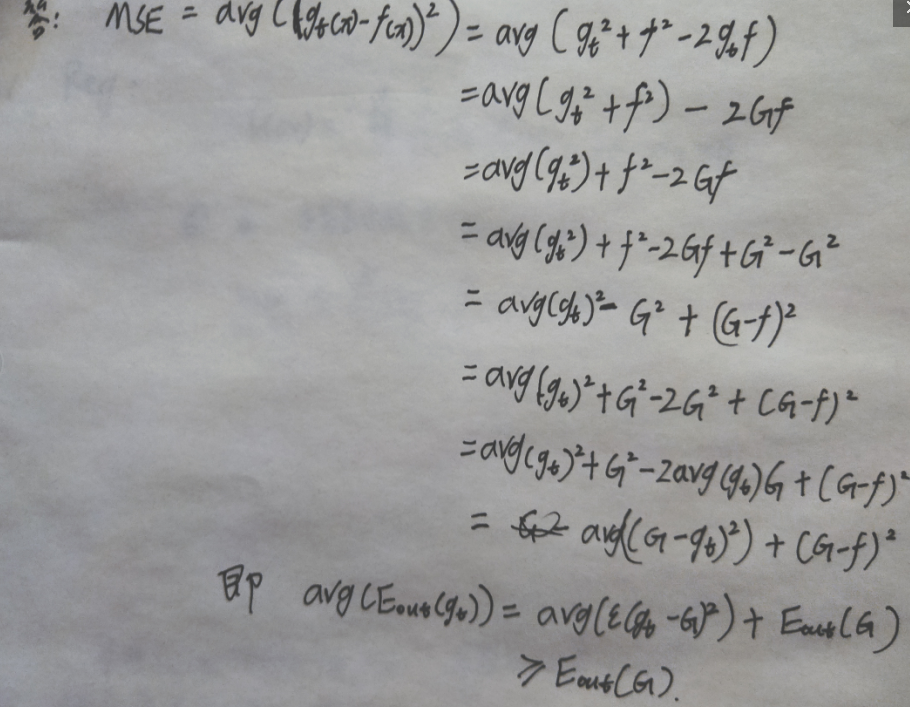 MSE = avg((g_t(x)-f(x))²) = avg(g_t²+f²-2g_tf)
=avg(g_t²+f²) - 2Gf
=avg(g_t²)+f²-2Gf
=avg(g_t²)+f²-2Gf+G²-G²
=avg(g_t)²-G²+(G-f)²
=avg(g_t)²+G²-2G²+(G-f)²
=avg(g_t)²+G²-2avg(g_t)G+(G-f)²
= avg((G-g_t)²)+(G-f)²
即 avg(E_out(g_t))=avg(ε(g_t-G)²)+E_out(G)
≥E_out(G).